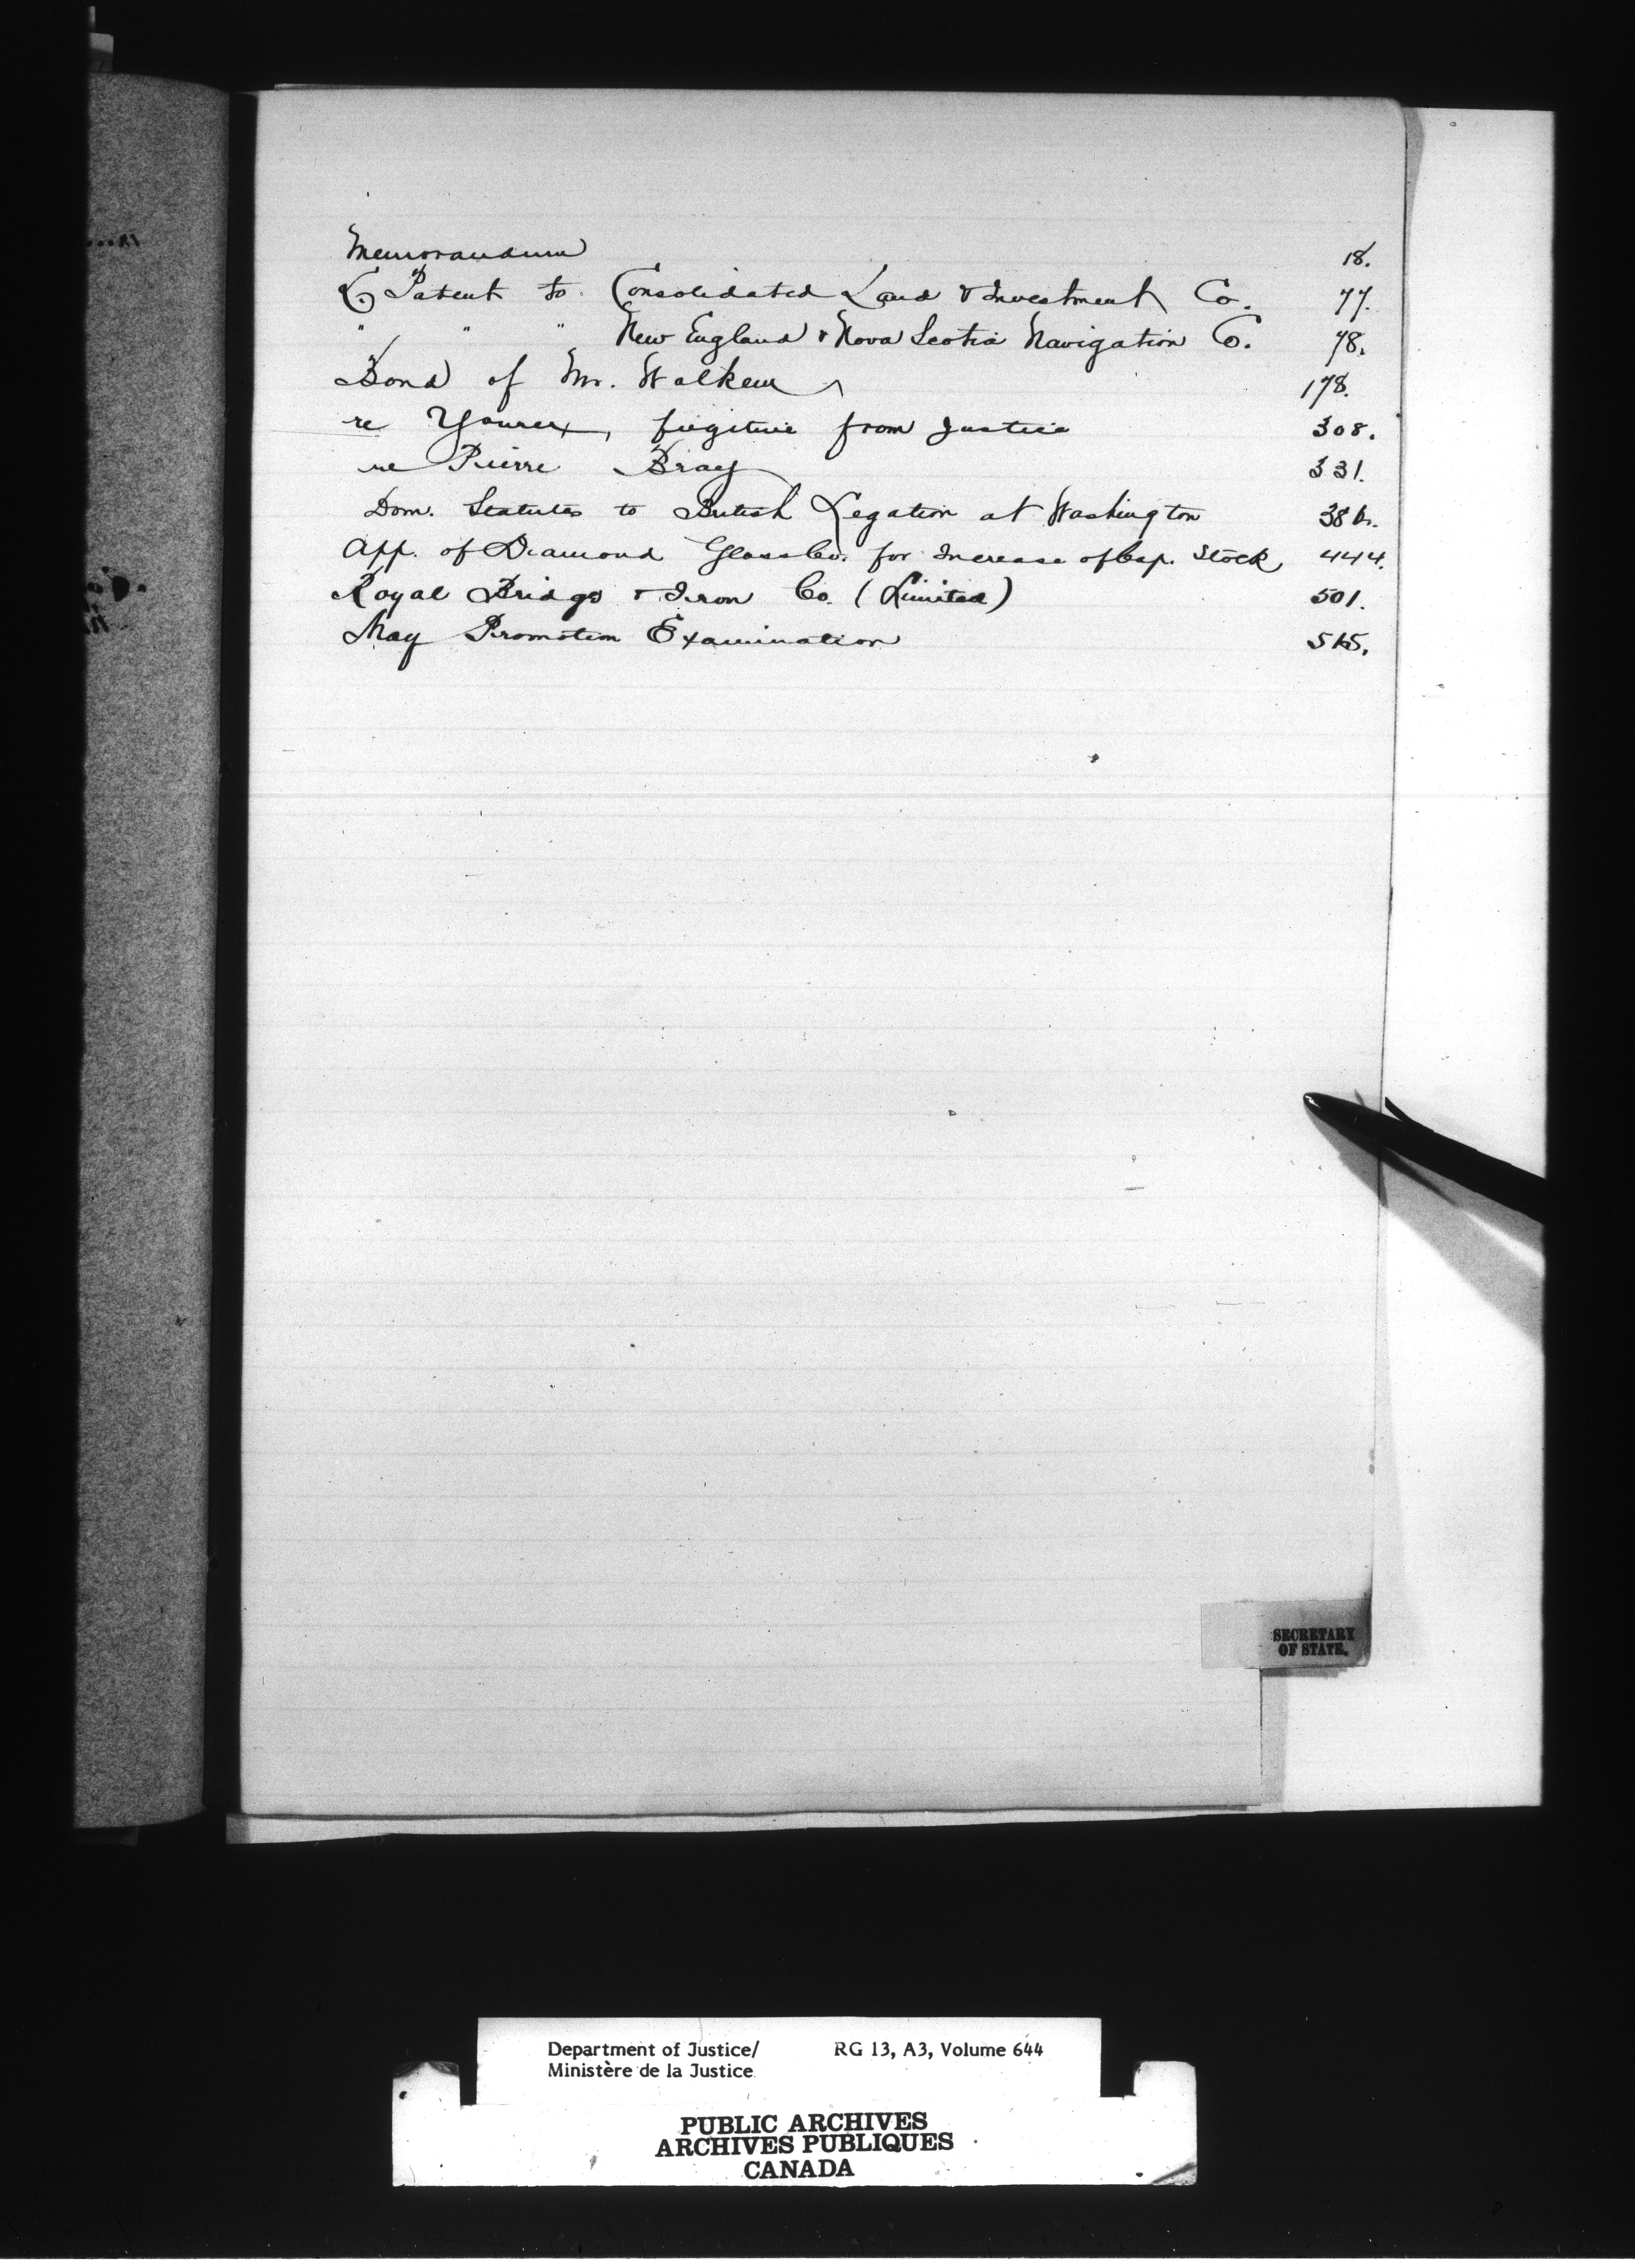 Memorandum 18.
L. Patent to Consolidated Land & Investment Co. 77.
" " " New England & Nova Scotia Navigation Co. 78.
Bond of Mr. Walkem 178.
re , fugitive from Justice 308.
re Pierre Bray 331.
Dom. Statutes to British Legation at Washington
App. of Diamond Glass Co. for Increase of Cap. Stock 444.
Royal Bridge & Iron Co. (Limited) 501.
May Promotion Examination
SECRETARY
OF STATE.
Department of Justice/ RG 13, A3, Volume 644
Ministère de la Justice
PUBLIC ARCHIVES
ARCHIVES PUBLIQUES
CANADA